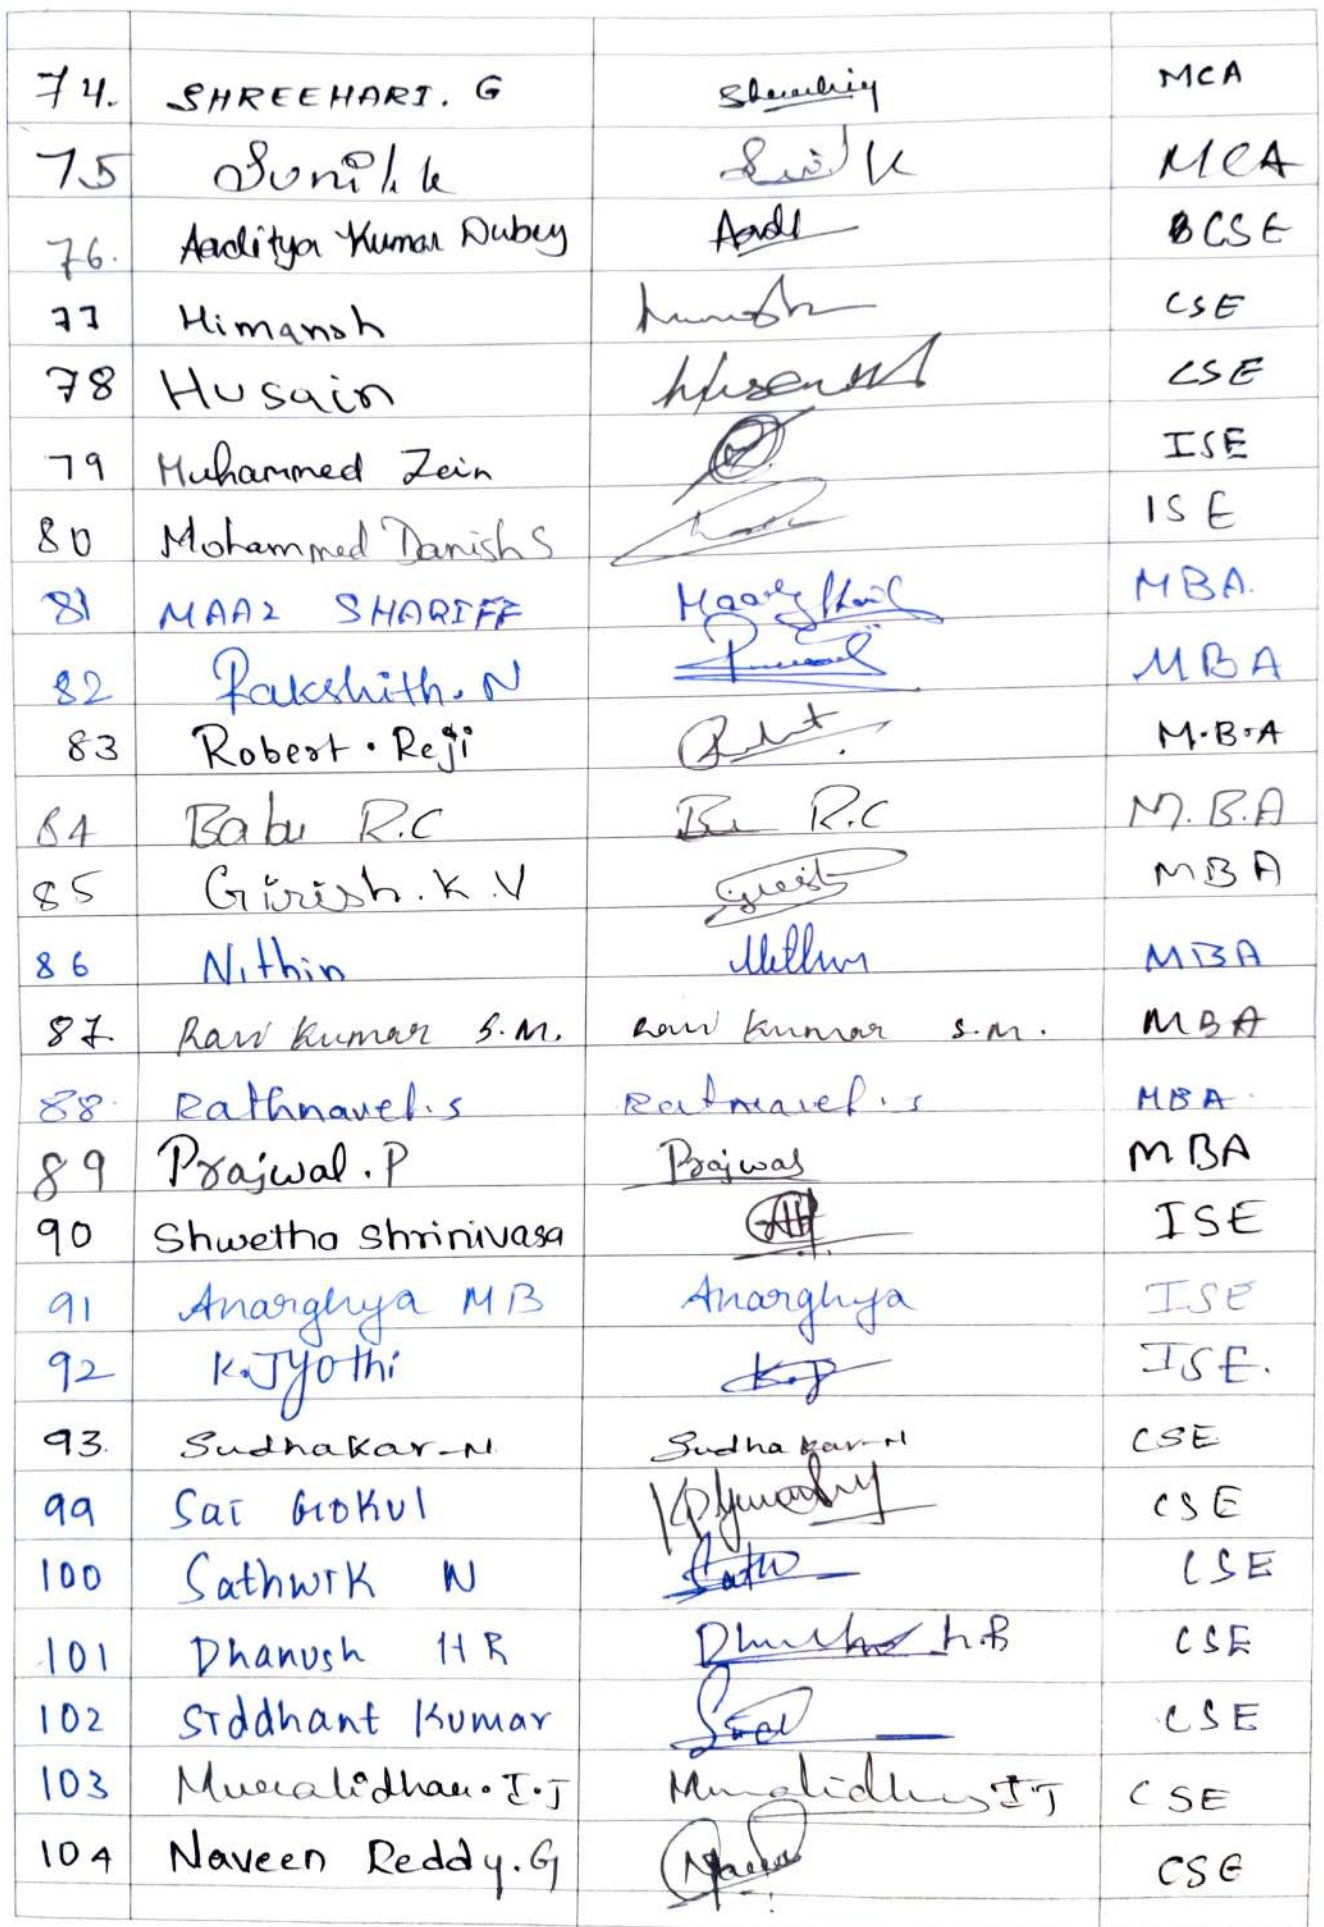 74. SHREEHARI. G Shreehari MCA
75 Sunil. k Sunil K MCA
76. Aaditya Kumar Dubey Aadi BCSE
77 Himansh CSE
78 Husain CSE
79 Muhammed Zein ISE
80 Mohammed Danish S ISE
81 MAAZ SHARIFF MBA.
82 Rakshith. N MBA
83 Robert. Reji M.B.A
84 Babu R.C R.C M.B.A
85 Girish. K. V MBA
86 Nithin MBA
87. Ravi kumar S.M. Ravi kumar S.M. MBA
88. Rathnavel. s Ratnavel. s MBA.
89 Prajwal. P Prajwal MBA
90 Shwetha Shrinivasa ISE
91 Anarghya MB Anarghya ISE
92 K. Jyothi K.J ISE.
93. Sudhakar-N Sudhakar-N CSE
99 Sai Gokul CSE
100 Sathwik N Sath CSE
101 Dhanush HR CSE
102 Siddhant Kumar CSE
103 Muralidhar. I. J Muralidhar I J CSE
104 Naveen Reddy. G CSE